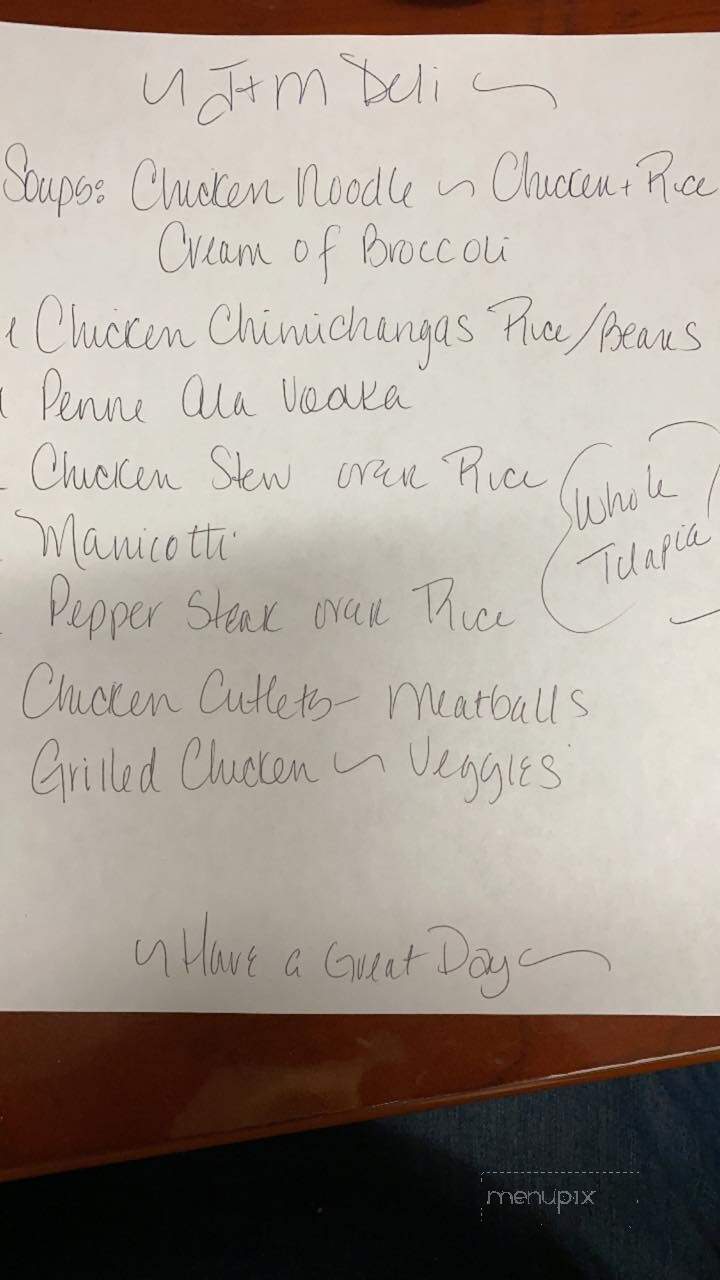 ~ J+M Deli ~
Soups: Chicken Noodle ~ Chicken + Rice
Cream of Broccoli
Chicken Chimichangas Rice/Beans
Penne Ala Vodka
Chicken Stew over Rice
Whole
Tilapia
Manicotti
Pepper Steak over Rice
Chicken Cutlets - Meatballs
Grilled Chicken ~ Veggies
~ Have a Great Day ~
menupix